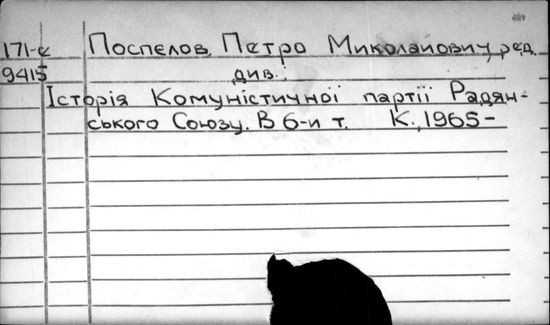 171-е Поспелов, Петро Миколайович, ред.
9415 див.:
Історія Комуністичної партії Радян-
ського Союзу. В 6-и т. К., 1965-